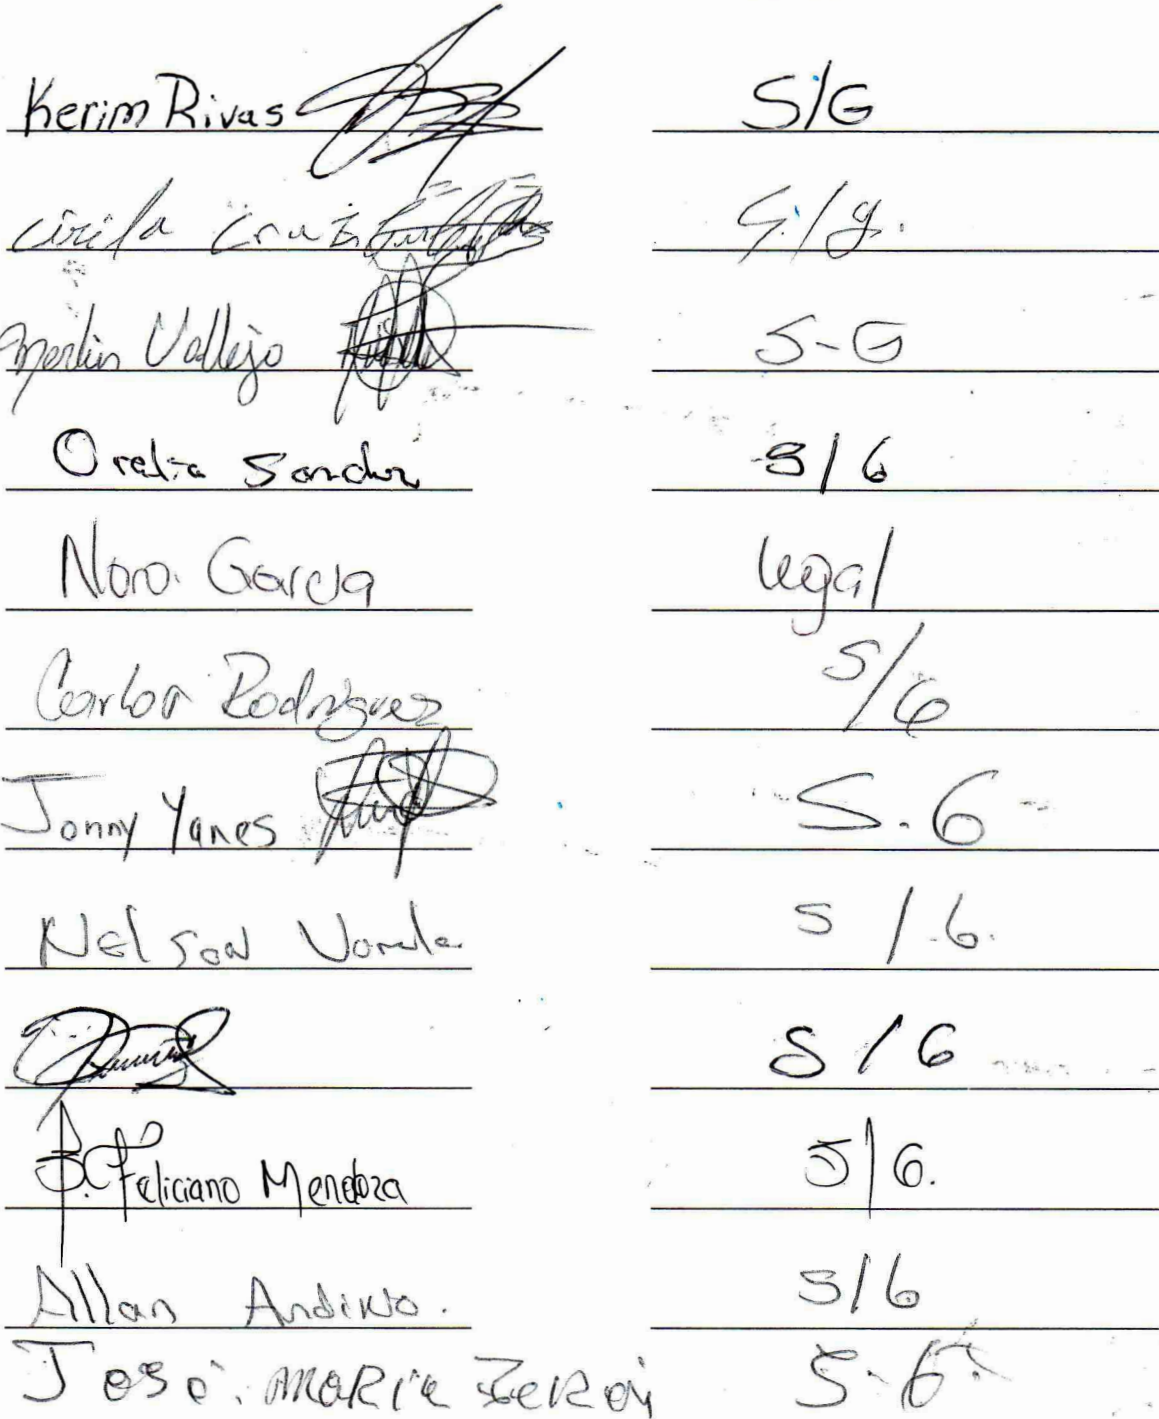 Kerim Rivas S/G
Cirila Cruz S/g.
Merlin Vallejo S-G
Orelia Sandez S/G
Nora Garcia legal
Carlos Rodriguez S/G
Jonny Yanes S.G
Nelson Varela S/G.
S/G
B. Feliciano Mendoza S/G.
Allan Andino. S/G
José. maria Zerón S-G.